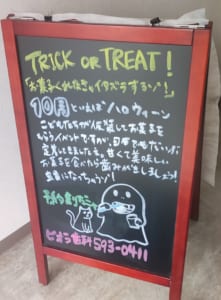 TRICK OR TREAT!
「お菓子くれなきゃイタズラするゾ!」
10月といえばハロウィーン
こどもたちが仮装してお菓子を
もらうイベントですが、日本でもだいぶ
定着してきましたね。甘くて美味しい
お菓子を食べたら歯みがきしましょう!
ビオラ歯科 593-0411